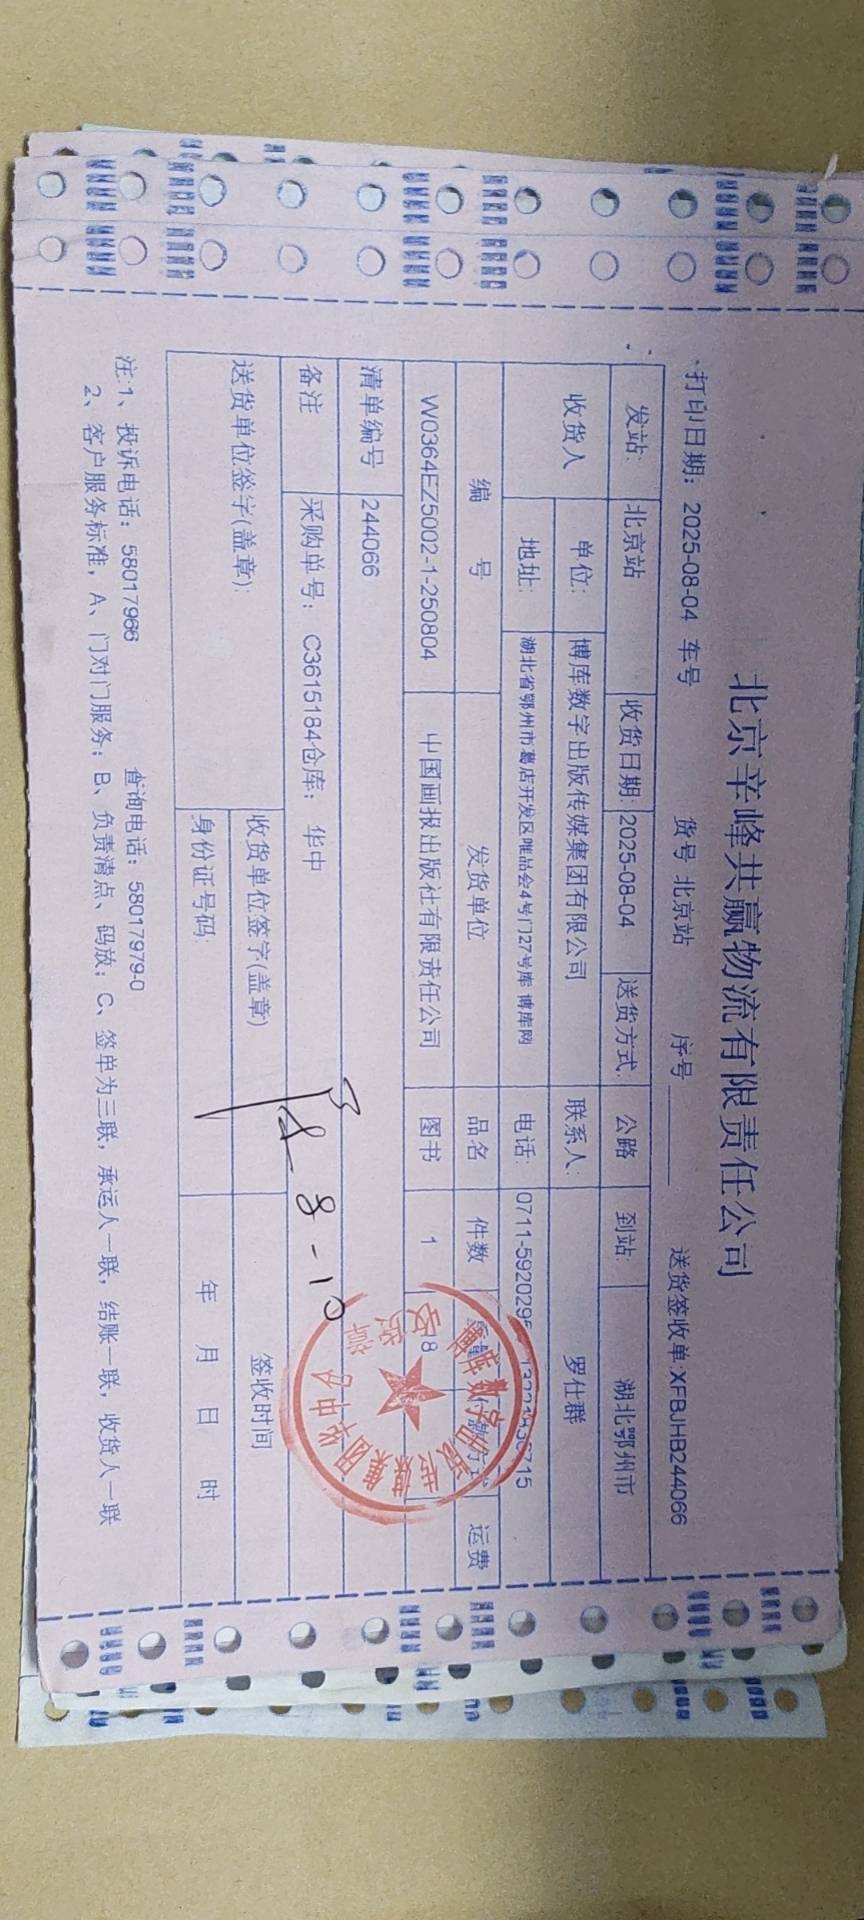 北京辛峰共赢物流有限责任公司
打印日期: 2025-08-04 车号 货号 北京站 序号 送货签收单:XFBJHB244066
发站: 北京站 收货日期: 2025-08-04 送货方式: 公路 到站: 湖北鄂州市
收货人 单位: 博库数字出版传媒集团有限公司 联系人: 罗仕群
地址: 湖北省鄂州市葛店开发区唯品会4号门27号库 博库网 电话: 0711-5920295
编 号 发货单位 品名 件数 运费
W0364EZ5002-1-250804 中国画报出版社有限责任公司 图书 1 8
清单编号 244066
备注 采购单号: C3615184仓库: 华中
送货单位签字(盖章): 收货单位签字(盖章) 签收时间
身份证号码: 年 月 日 时
8-10
博库数字出版传媒集团华中
收货章
注:1、投诉电话: 58017966 查询电话: 58017979-0
2、客户服务标准, A、门对门服务; B、负责清点、码放; C、签单为三联, 承运人一联, 结账一联, 收货人一联